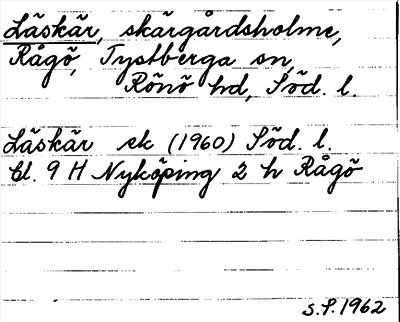 Läskär, skärgårdsholme,
Rågö, Tystberga sn,
Rönö hd, Söd. l.
Läskär ek (1960) Söd. l.
bl. 9 H Nyköping 2 h Rågö
S.P. 1962